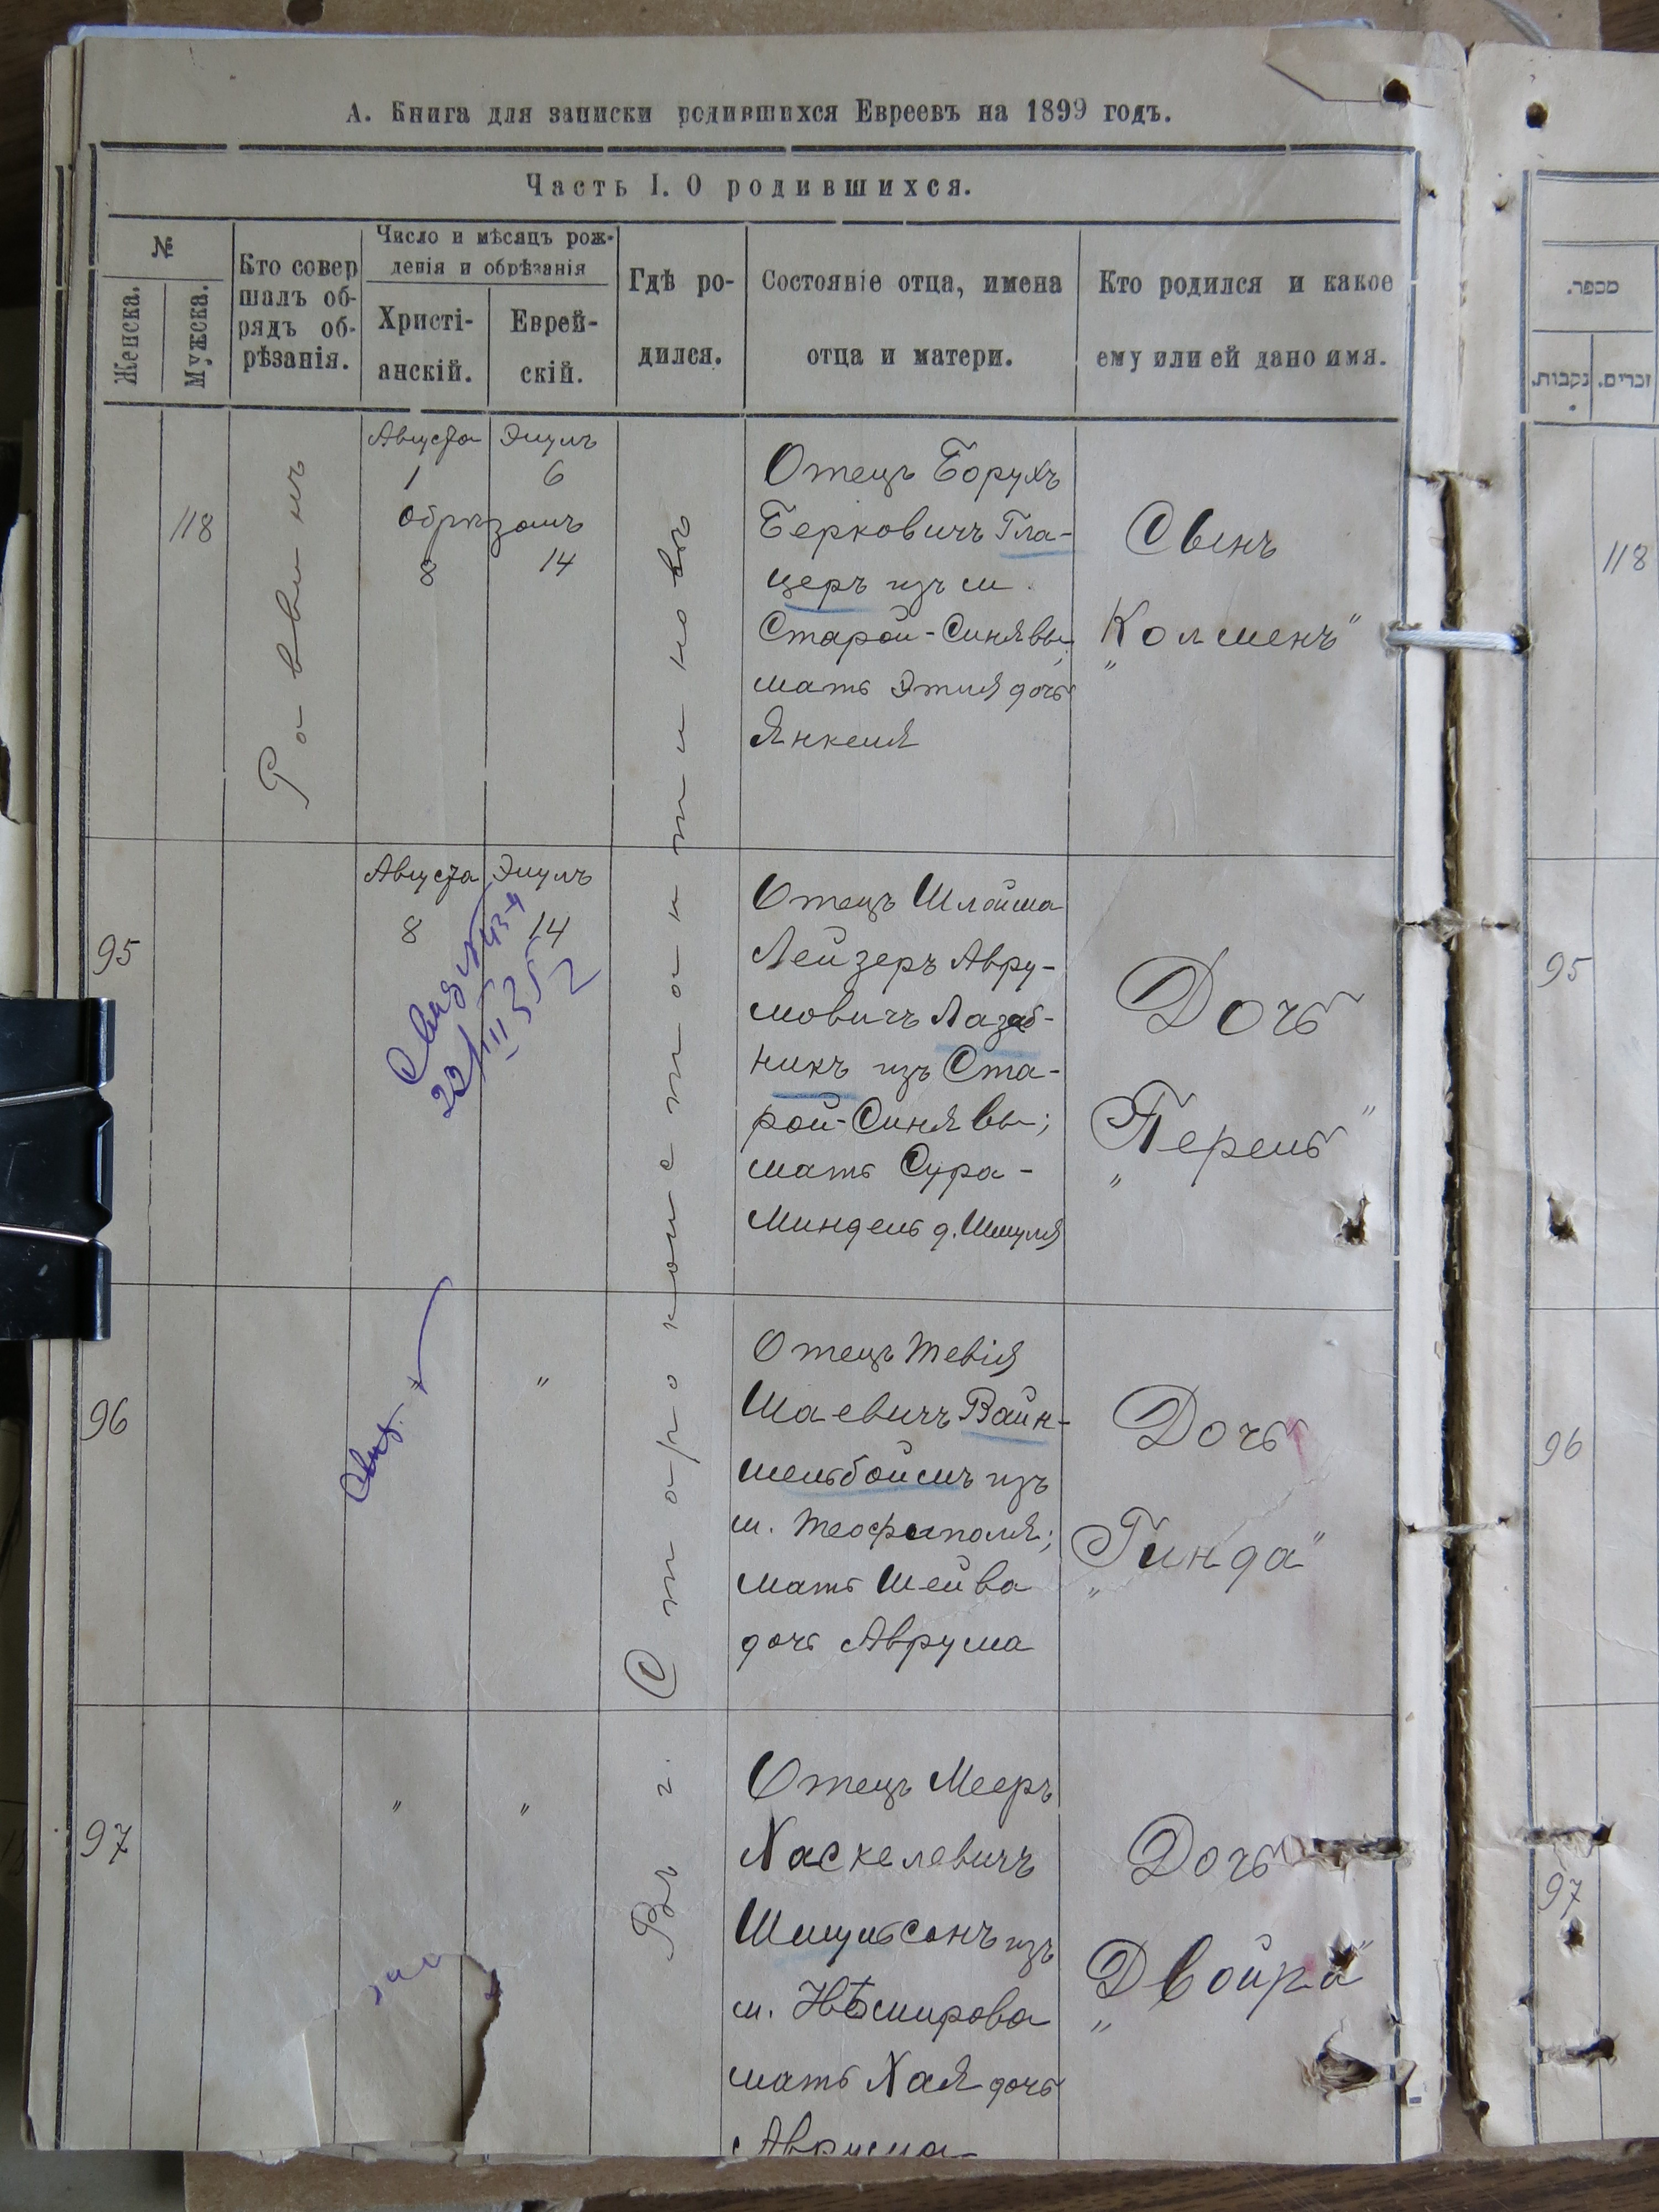 А. Книга для записки родившихся Евреевъ на 1899 годъ.
Часть I. О родившихся.
№
Женска.
Мужска.
Кто совер
шалъ об-
рядъ об-
рѣзанія.
Число и мѣсяцъ рож-
денія и обрѣзанія
Христі-
анскій.
Еврей-
скій.
Гдѣ ро-
дился.
Состояніе отца, имена
отца и матери.
Кто родился и какое
ему или ей дано имя.
מספר.
נקבות.
זכרים.
118
Раввинъ
Августа Элулъ
1 6
обрѣзанъ
8 14
Въ г. Староконстантиновѣ
Отецъ Борухъ
Берковичъ Гла-
церъ изъ м.
Старой-Синявы,
мать Этля дочь
Янкеля
Сынъ
"Колменъ"
118
95
Августа Элулъ
8 14
22/III 35
Отецъ Шлойма
Лейзеръ Авру-
мовичъ Лазеб-
никъ изъ Ста-
рой-Синявы;
мать Сура-
Миндель д. Шмуля
Дочь
"Перель"
95
96
" "
Отецъ Тевія
Шаевичъ Вайн-
шельбоймъ изъ
м. Теофиполя;
мать Шейва
дочь Аврума
Дочь
"Гинда"
96
97
" "
Отецъ Мееръ
Хаскелевичъ
Шмульсонъ изъ
м. Нѣмирова
мать Хая дочь
Аврума
Дочь
"Двойра"
97